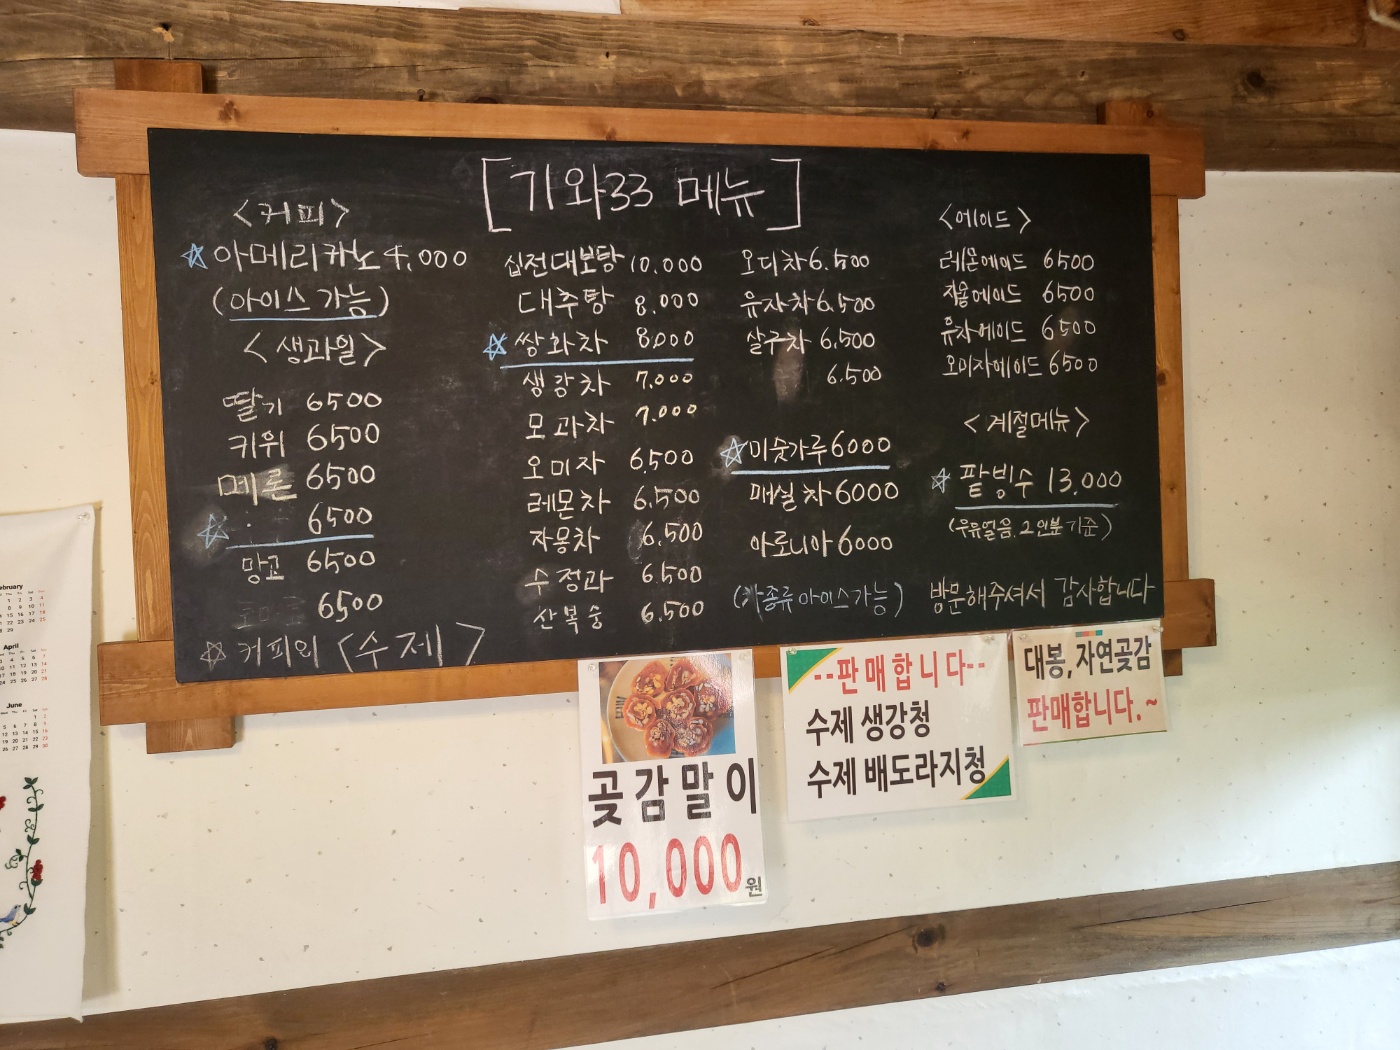 [기와33 메뉴]
<커피>
아메리카노 4,000
(아이스 가능)
<생과일>
딸기 6500
키위 6500
메론 6500
6500
망고 6500
6500
커피외 <수제>
십전대보탕 10,000
대추탕 8,000
쌍화차 8,000
생강차 7,000
모과차 7,000
오미자 6,500
레몬차 6,500
자몽차 6,500
수정과 6,500
산복숭 6,500
오디차 6,500
유자차 6,500
살구차 6,500
6,500
미숫가루 6000
매실차 6000
아로니아 6000
(차종류 아이스가능)
<에이드>
레몬에이드 6500
자몽에이드 6500
유자에이드 6500
오미자에이드 6500
<계절메뉴>
팥빙수 13,000
(우유얼음. 2인분 기준)
방문해주셔서 감사합니다
곶감말이
10,000원
--판매합니다--
수제 생강청
수제 배도라지청
대봉, 자연곶감
판매합니다.~
April
June